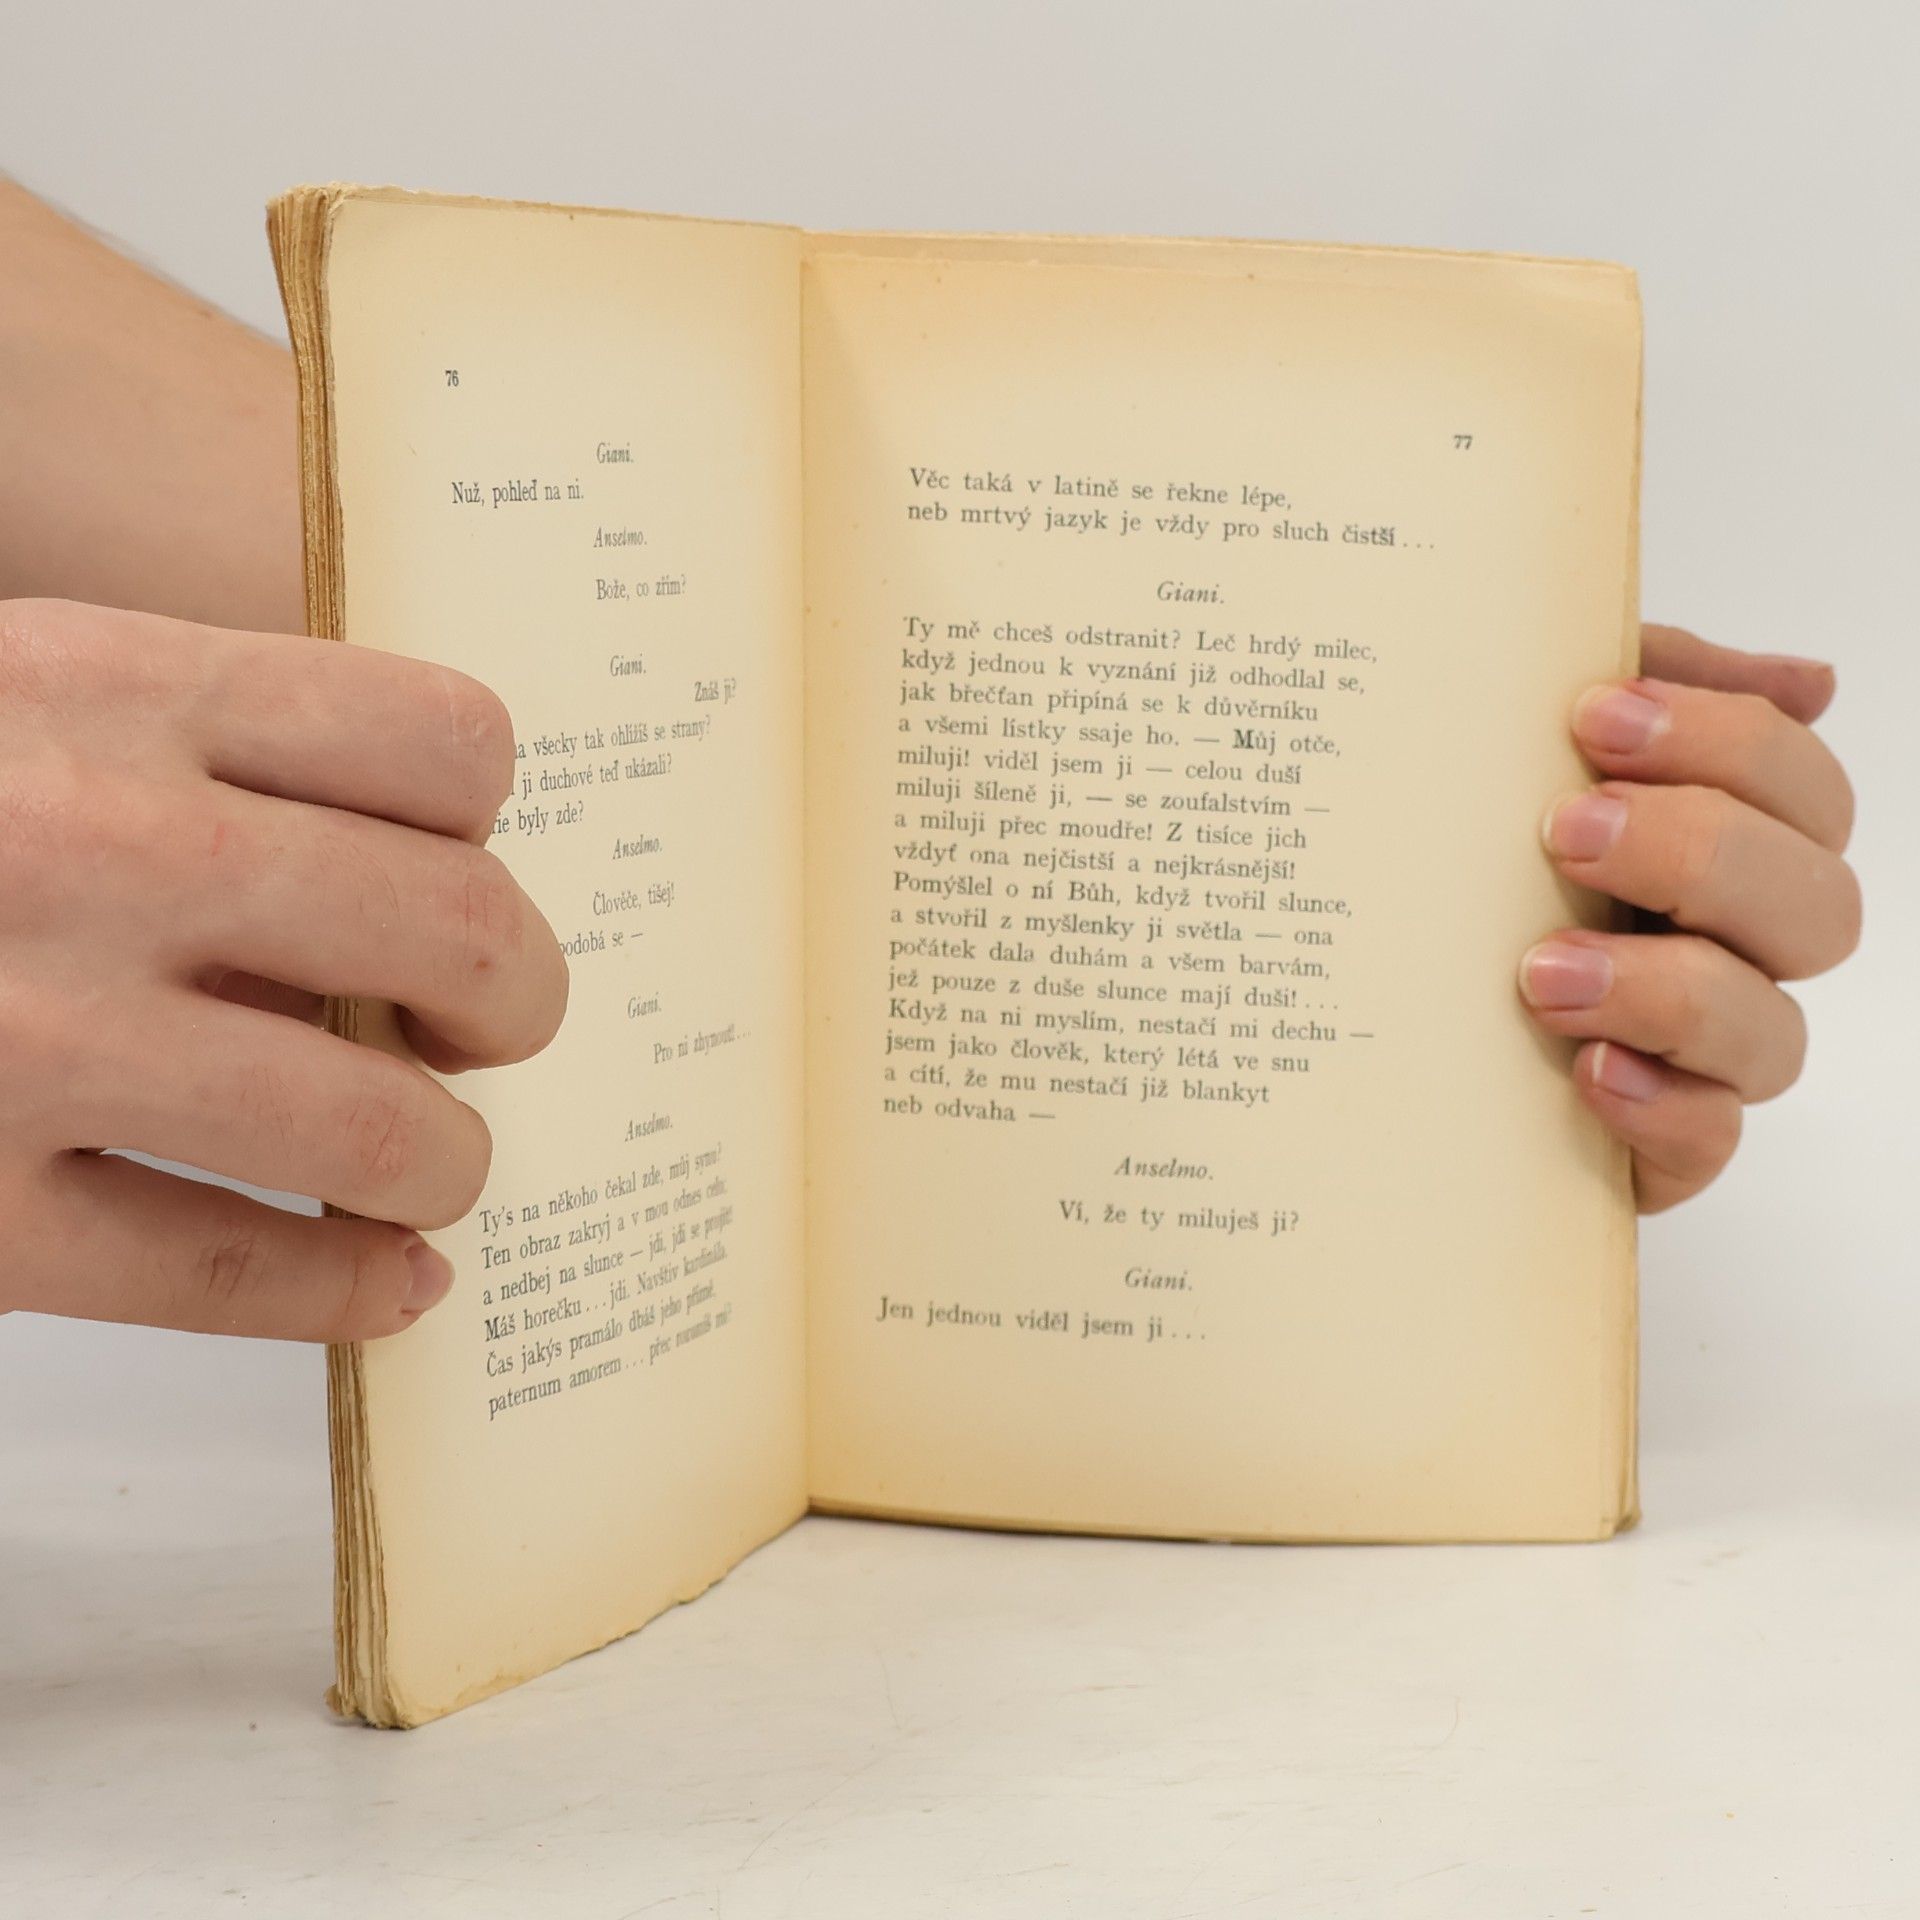 76
Giani.
Nuž, pohleď na ni.
Anselmo.
Bože, co zřím?
Giani.
Znáš ji?
všecky tak ohlížíš se strany?
ji duchové teď ukázali?
byly zde?
Anselmo.
Člověče, tišej!
se —
Giani.
Pro ni zhynout!...
Anselmo.
Ty's na někoho čekal zde, můj synu?
Ten obraz zakryj a v mou odnes celu;
a nedbej na slunce — jdi, jdi se projít!
Máš horečku... jdi. Navštiv kardinála.
Čas jakýs pramálo dbáš jeho přímě,
paternum amorem... přec rozumíš mi?
77
Věc taká v latině se řekne lépe,
neb mrtvý jazyk je vždy pro sluch čistší...
Giani.
Ty mě chceš odstranit? Leč hrdý milec,
když jednou k vyznání již odhodlal se,
jak břečťan připíná se k důvěrníku
a všemi lístky ssaje ho. — Můj otče,
miluji! viděl jsem ji — celou duší
miluji šíleně ji, — se zoufalstvím —
a miluji přec moudře! Z tisíce jich
vždyť ona nejčistší a nejkrásnější!
Pomýšlel o ní Bůh, když tvořil slunce,
a stvořil z myšlenky ji světla — ona
počátek dala duhám a všem barvám,
jež pouze z duše slunce mají duši!...
Když na ni myslím, nestačí mi dechu —
jsem jako člověk, který létá ve snu
a cítí, že mu nestačí již blankyt
neb odvaha —
Anselmo.
Ví, že ty miluješ ji?
Giani.
Jen jednou viděl jsem ji...